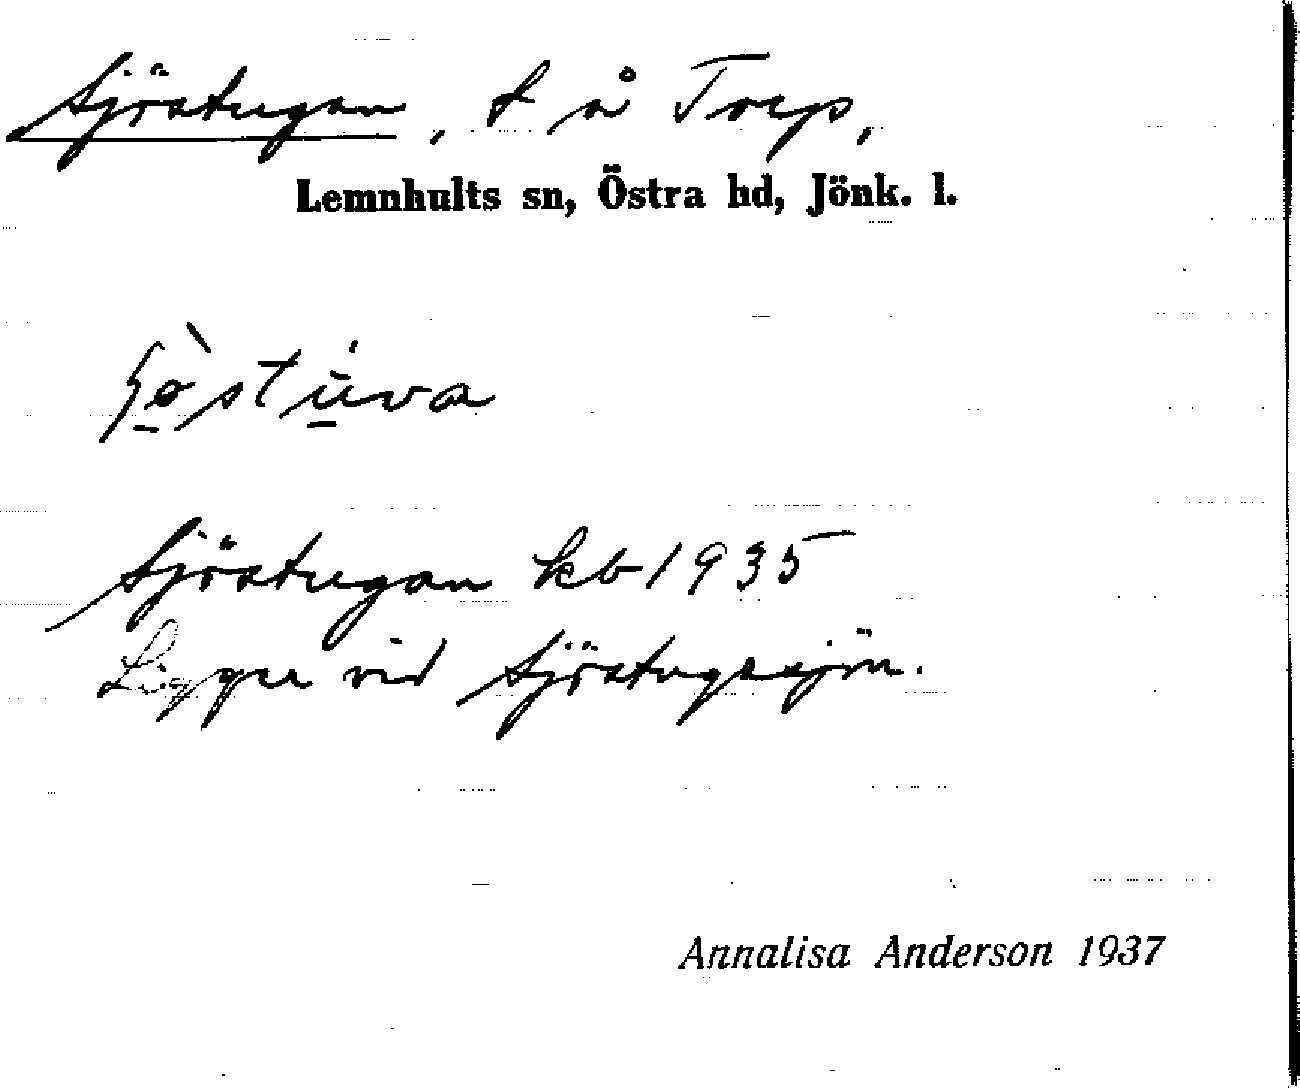 Sjöstugan, t å Torp,
Lemnhults sn, Östra hd, Jönk. l.
Sjöstugan kb 1935
Ligger vid Sjöstugesjön.
Annalisa Anderson 1937